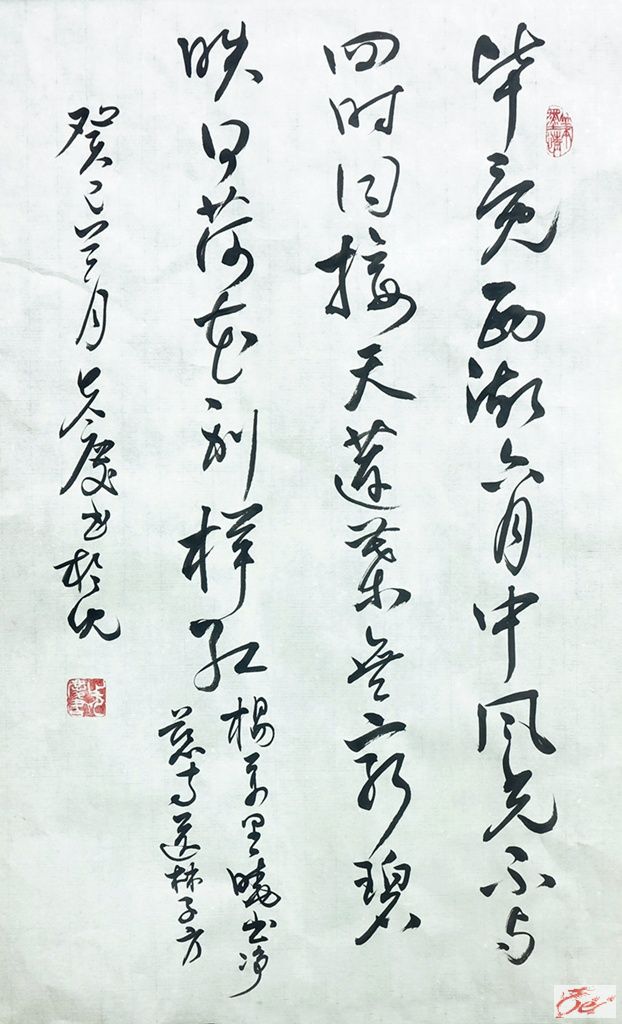 毕竟西湖六月中风光不与
四时同接天莲叶无穷碧
映日荷花别样红
杨万里晓出净
慈寺送林子方
癸巳六月
庆书于沈